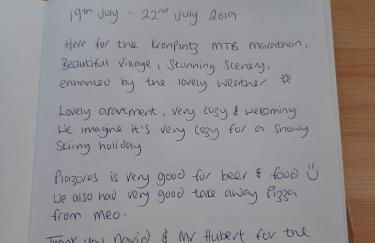 19th July - 22nd July 2019
Here for the Kronplatz MTB marathon,
Beautiful village, Stunning Scenery,
enhanced by the lovely weather
Lovely apartment, very cozy & welcoming
We imagine it's very cozy for a snowy
Skiing holiday
Plazores is very good for beer & food
We also had very good take away Pizza
from Meo.
Thank you David & Mr Hubert for the